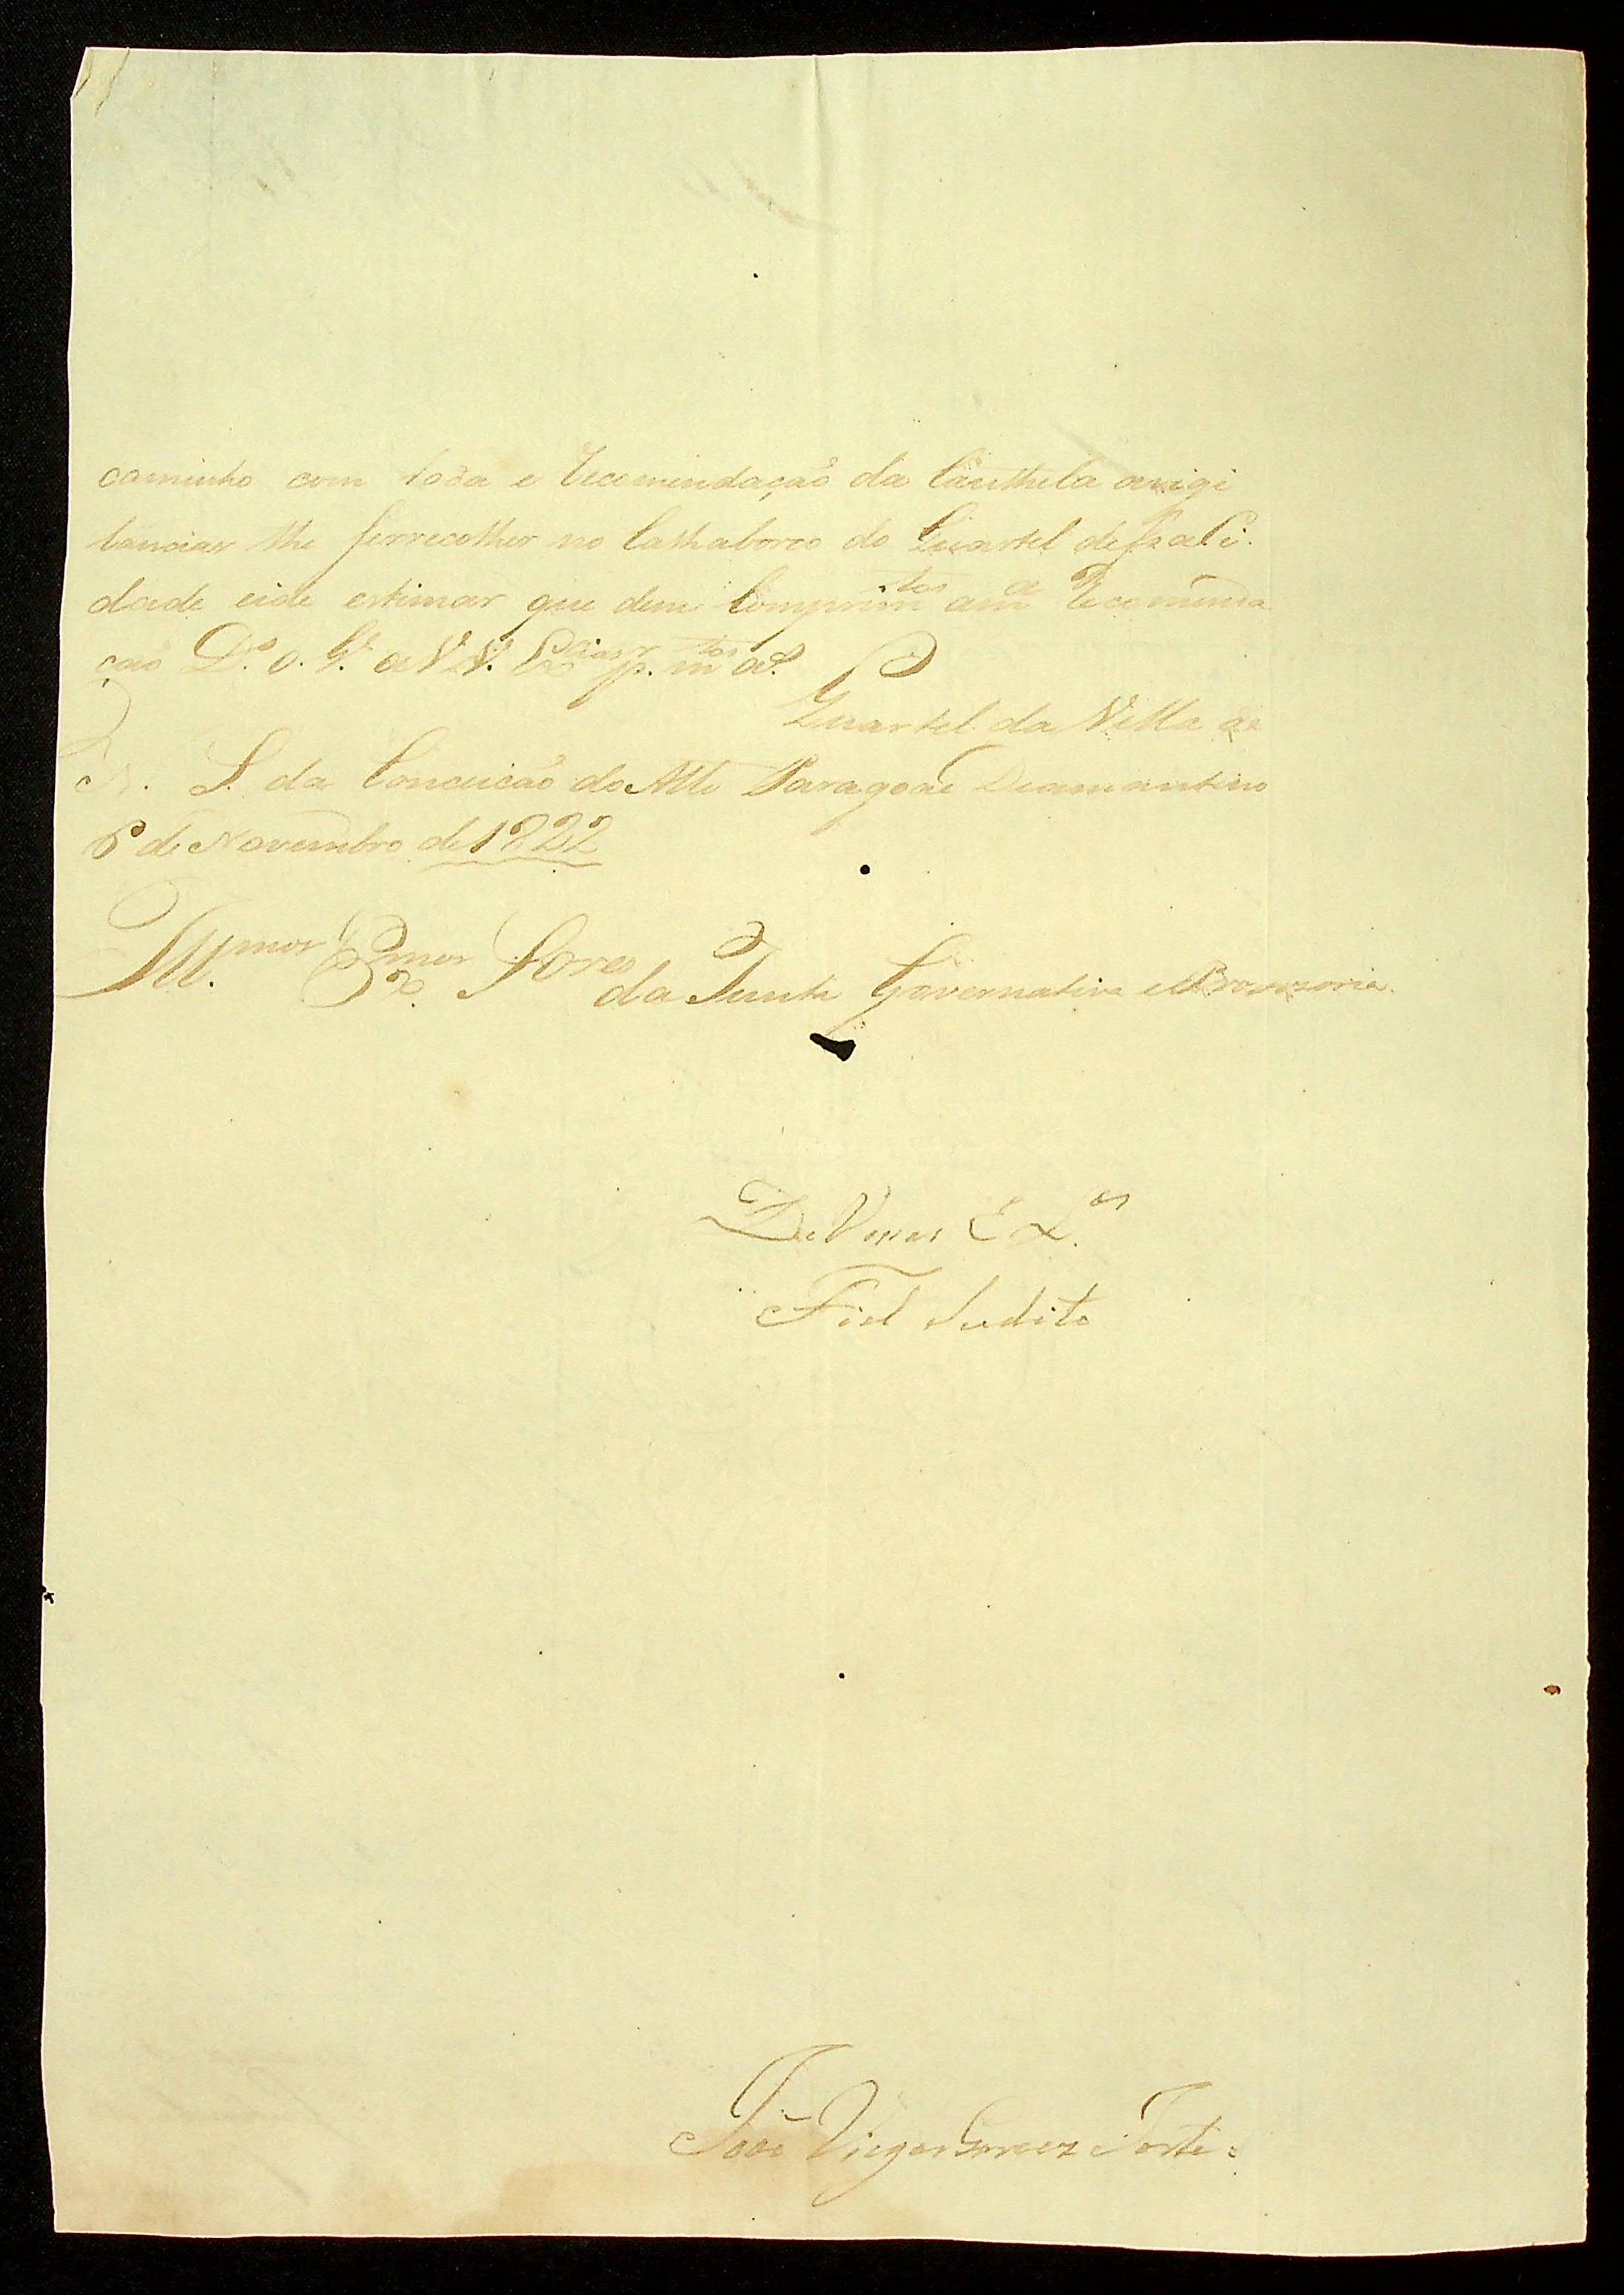 caminho com toda e Recomendação da Cauthela avigi
lanciar the serrecolher no Calhaboco do Quartel
dade eide estimar que dem Comprim.tos am.a Recomenda
caõ D.s o. G.e a VV. Ex.cias p. m.tos a.s
Quartel da Villa de
N. S. da Conceicaõ do Alto Paragoai Diamantino
6 de Novembro de 1822
Ill.mos Ex.mos Sores
da Junta Governativa e Provizoria.
De Vossas Ex.as
Fiel Sudito
João